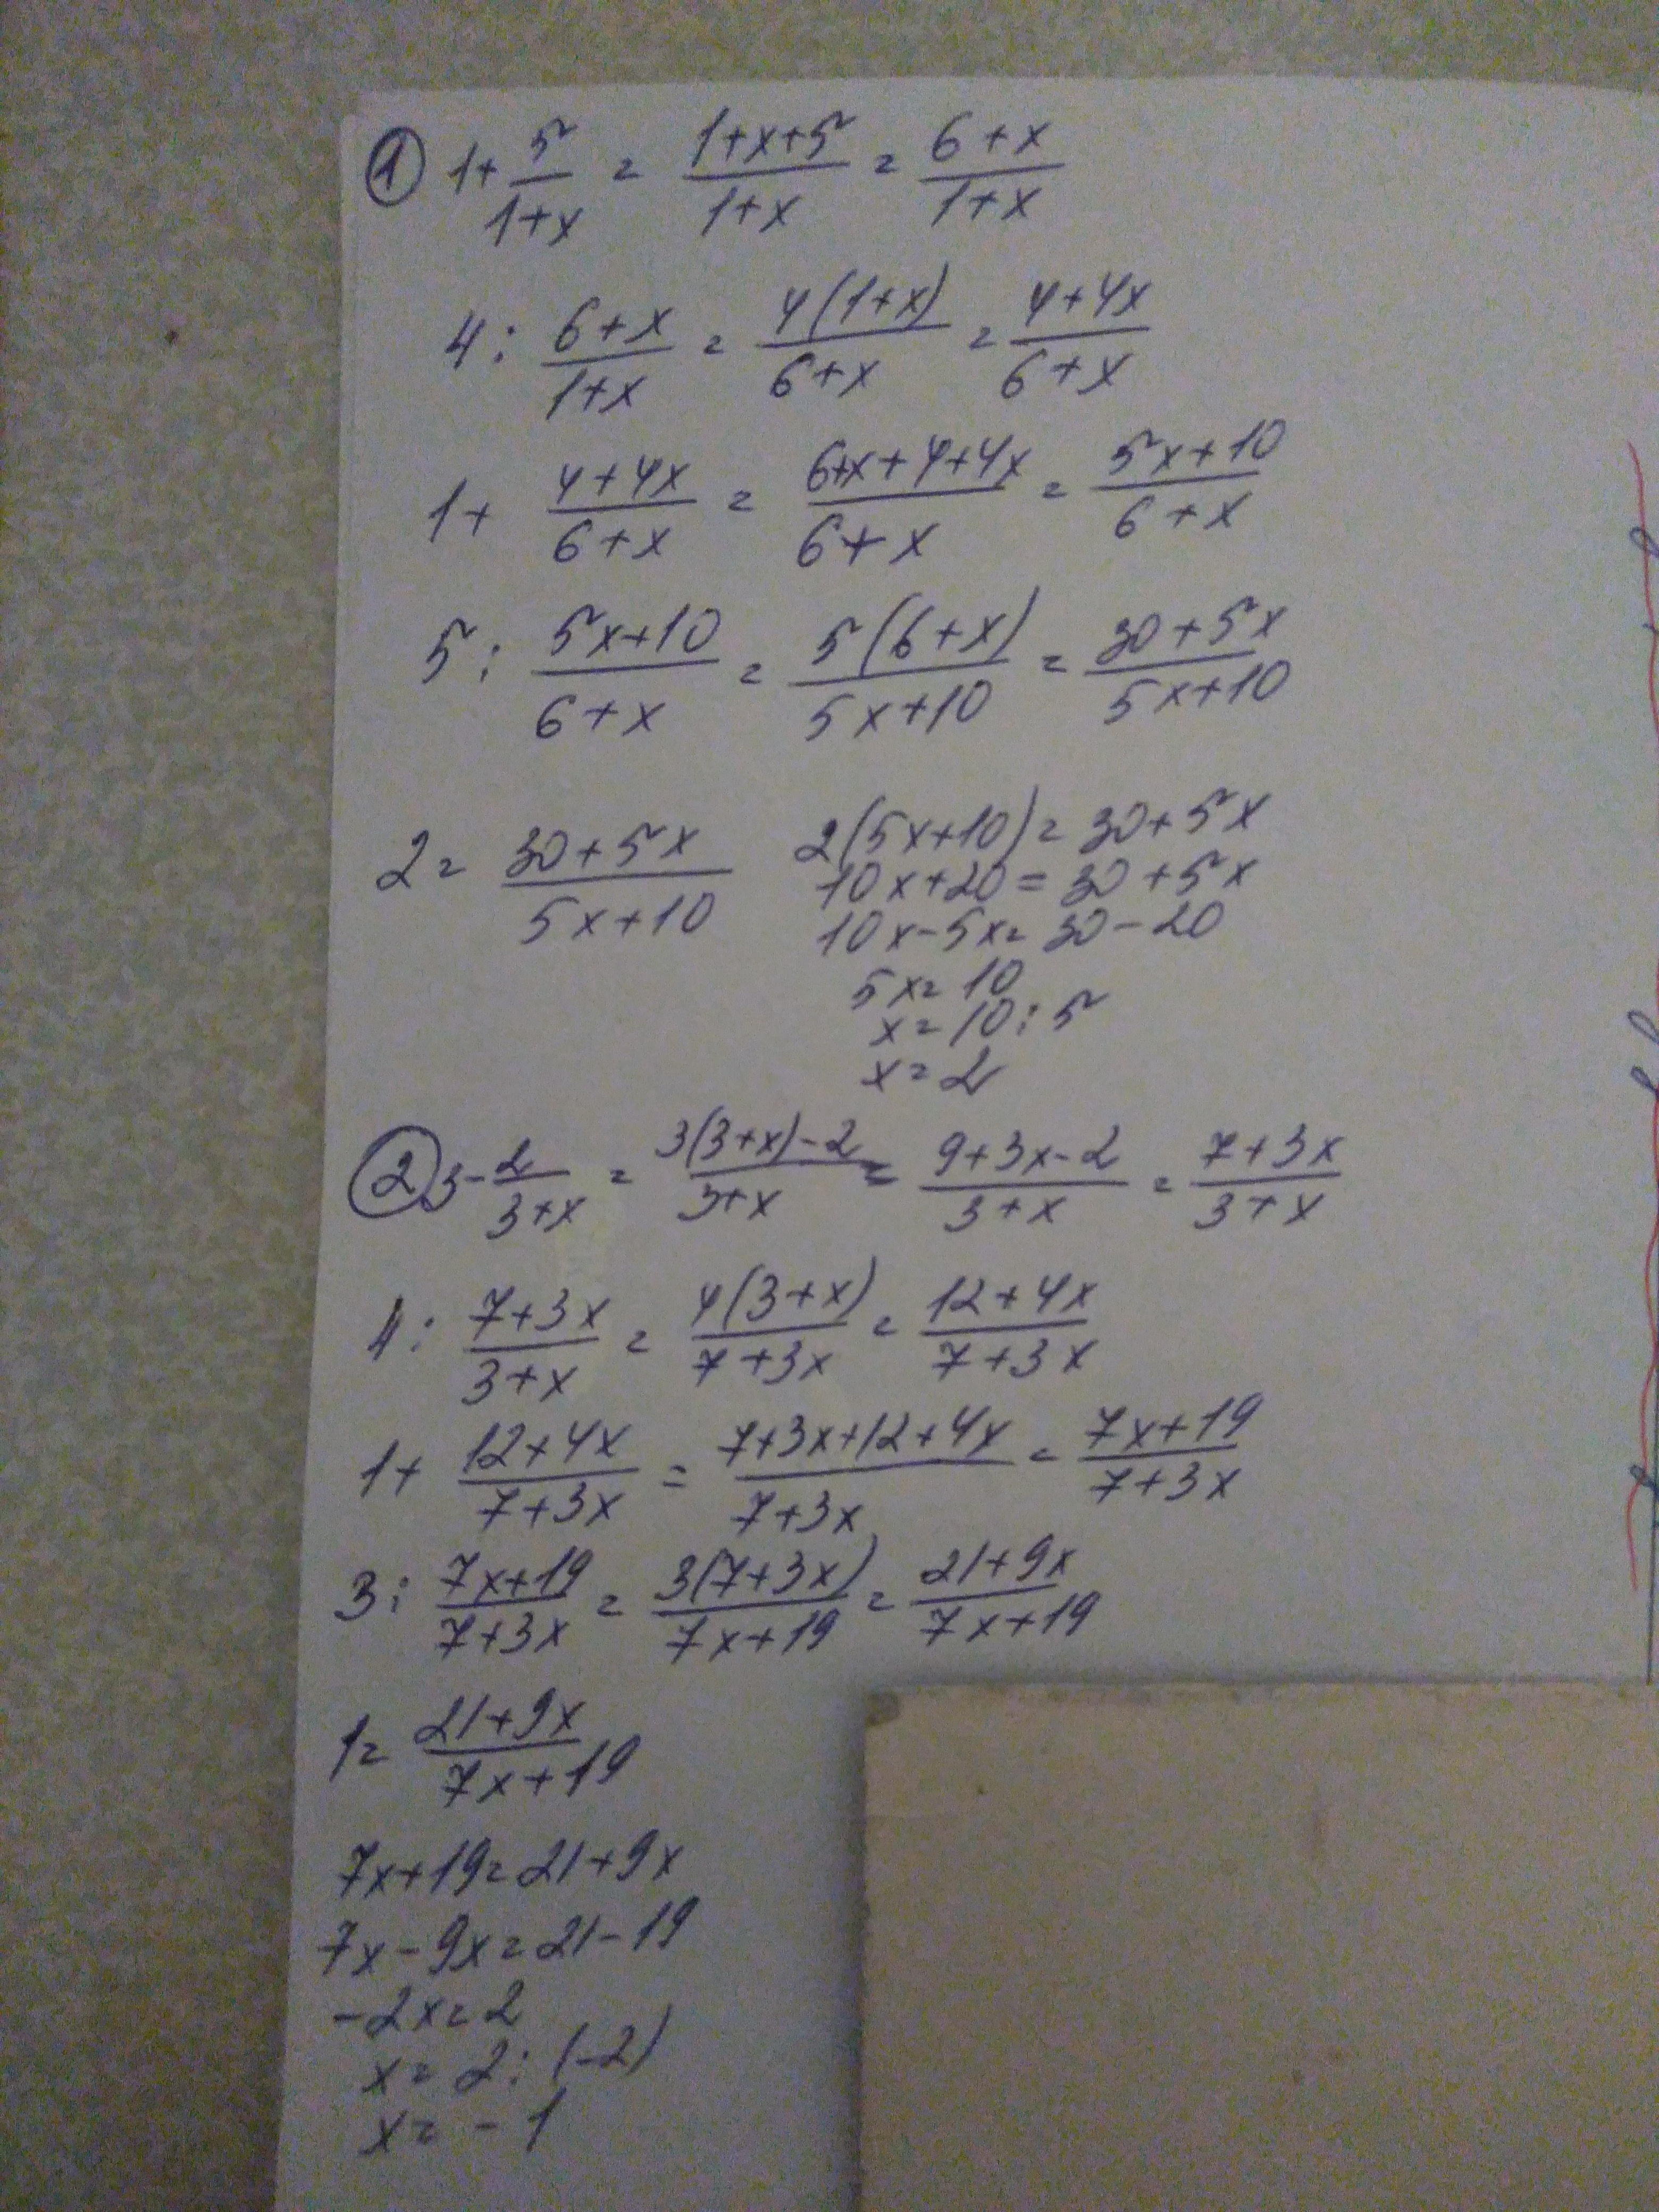 ① 1+ 5/(1+x) = (1+x+5)/(1+x) = (6+x)/(1+x)
4 : (6+x)/(1+x) = 4(1+x)/(6+x) = (4+4x)/(6+x)
1+ (4+4x)/(6+x) = (6+x+4+4x)/(6+x) = (5x+10)/(6+x)
5 : (5x+10)/(6+x) = 5(6+x)/(5x+10) = (30+5x)/(5x+10)
2 = (30+5x)/(5x+10)
2(5x+10) = 30+5x
10x+20 = 30+5x
10x-5x = 30-20
5x = 10
x = 10 : 5
x = 2
② 3- 2/(3+x) = (3(3+x)-2)/(3+x) = (9+3x-2)/(3+x) = (7+3x)/(3+x)
4 : (7+3x)/(3+x) = 4(3+x)/(7+3x) = (12+4x)/(7+3x)
1+ (12+4x)/(7+3x) = (7+3x+12+4x)/(7+3x) = (7x+19)/(7+3x)
3 : (7x+19)/(7+3x) = 3(7+3x)/(7x+19) = (21+9x)/(7x+19)
1 = (21+9x)/(7x+19)
7x+19 = 21+9x
7x-9x = 21-19
-2x = 2
x = 2 : (-2)
x = -1